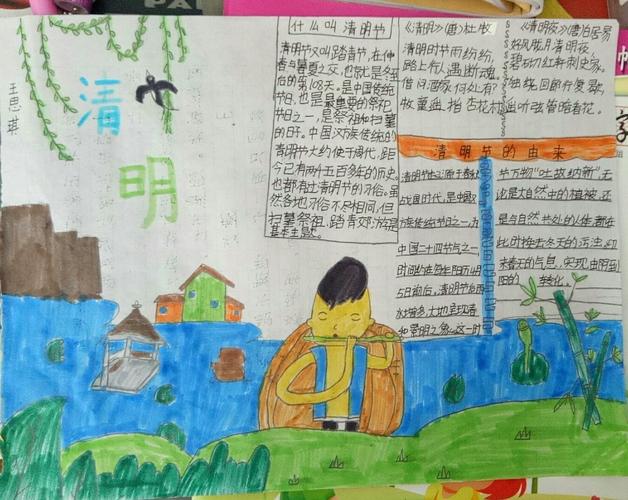 王思琪
清
明
什么叫清明节
清明节又叫踏青节,在仲
春与暮夏之交,也就是冬至
后的第108天。是中国传统
节日,也是最重要的祭祀
节日之一,是祭祖和扫墓
的日子。中国汉族传统的
清明节大约始于周代,距
今已有两千五百多年的历史。
也都有过清明节的习俗。虽
然各地习俗不尽相同,但
扫墓祭祖、踏青郊游是
基本主题。
《清明》(唐)杜牧
清明时节雨纷纷,
路上行人遇断魂。
借问酒家何处有?
牧童遥指杏花村。
《清明夜》唐 白居易
好风胧月清明夜,
碧砌红轩刺史家。
独绕回廊行复歇,
遥听弦管暗看花。
清明节的由来
战国时代,是中国
族传统节日之一,为
中国二十四节气之一,
时间约在每年阳历4月
5日前后。清明节后雨
水增多,大地呈现春
和景明之象。这一时
节万物"吐故纳新",无
论是大自然中的植被,还
是与自然共处的人体,都在
此时换去冬天的污浊,迎
来春天的气息,实现由阴到
阳的转化。